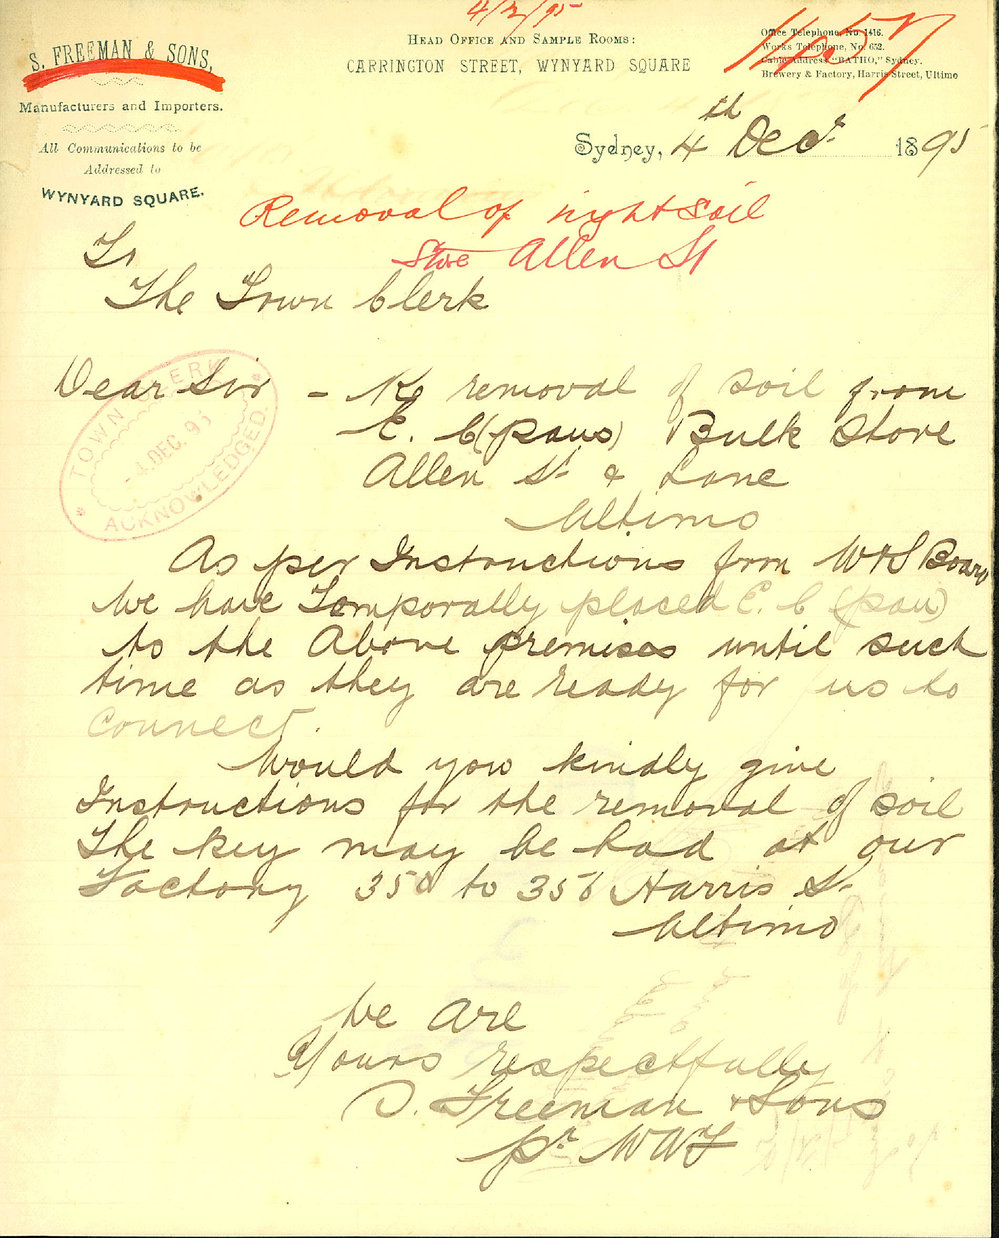 4/12/95
S. FREEMAN & SONS,
Manufacturers and Importers.
All Communications to be
Addressed to
WYNYARD SQUARE.
HEAD OFFICE AND SAMPLE ROOMS:
CARRINGTON STREET, WYNYARD SQUARE
Office Telephone, No. 1416.
Works Telephone, No. 652.
Cable Address, "BATHO," Sydney.
Brewery & Factory, Harris Street, Ultimo
Sydney, 4th Decr 1895
Removal of nightsoil
Store Allen St
To
The Town Clerk
TOWN CLERK
4 DEC. 95
ACKNOWLEDGED
Dear Sir - Re removal of soil from
E. C (pans) Bulk Store
Allen St & Lane
Ultimo
As per Instructions from W & S Board
We have Temporally placed E. C (pan)
to the Above premises until such
time as they are ready for us to
Connect.
Would you kindly give
Instructions for the removal of soil
The key may be had at our
Factory 350 to 356 Harris St
Ultimo
We are
Yours respectfully
S. Freeman & Sons
pr WWF